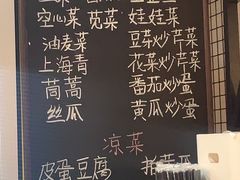 空心菜 苋菜 娃娃菜
油麦菜 豆芽炒芹菜
上海青 花菜炒芹菜
茼蒿 番茄炒蛋
丝瓜 黄瓜炒蛋
凉菜
皮蛋豆腐